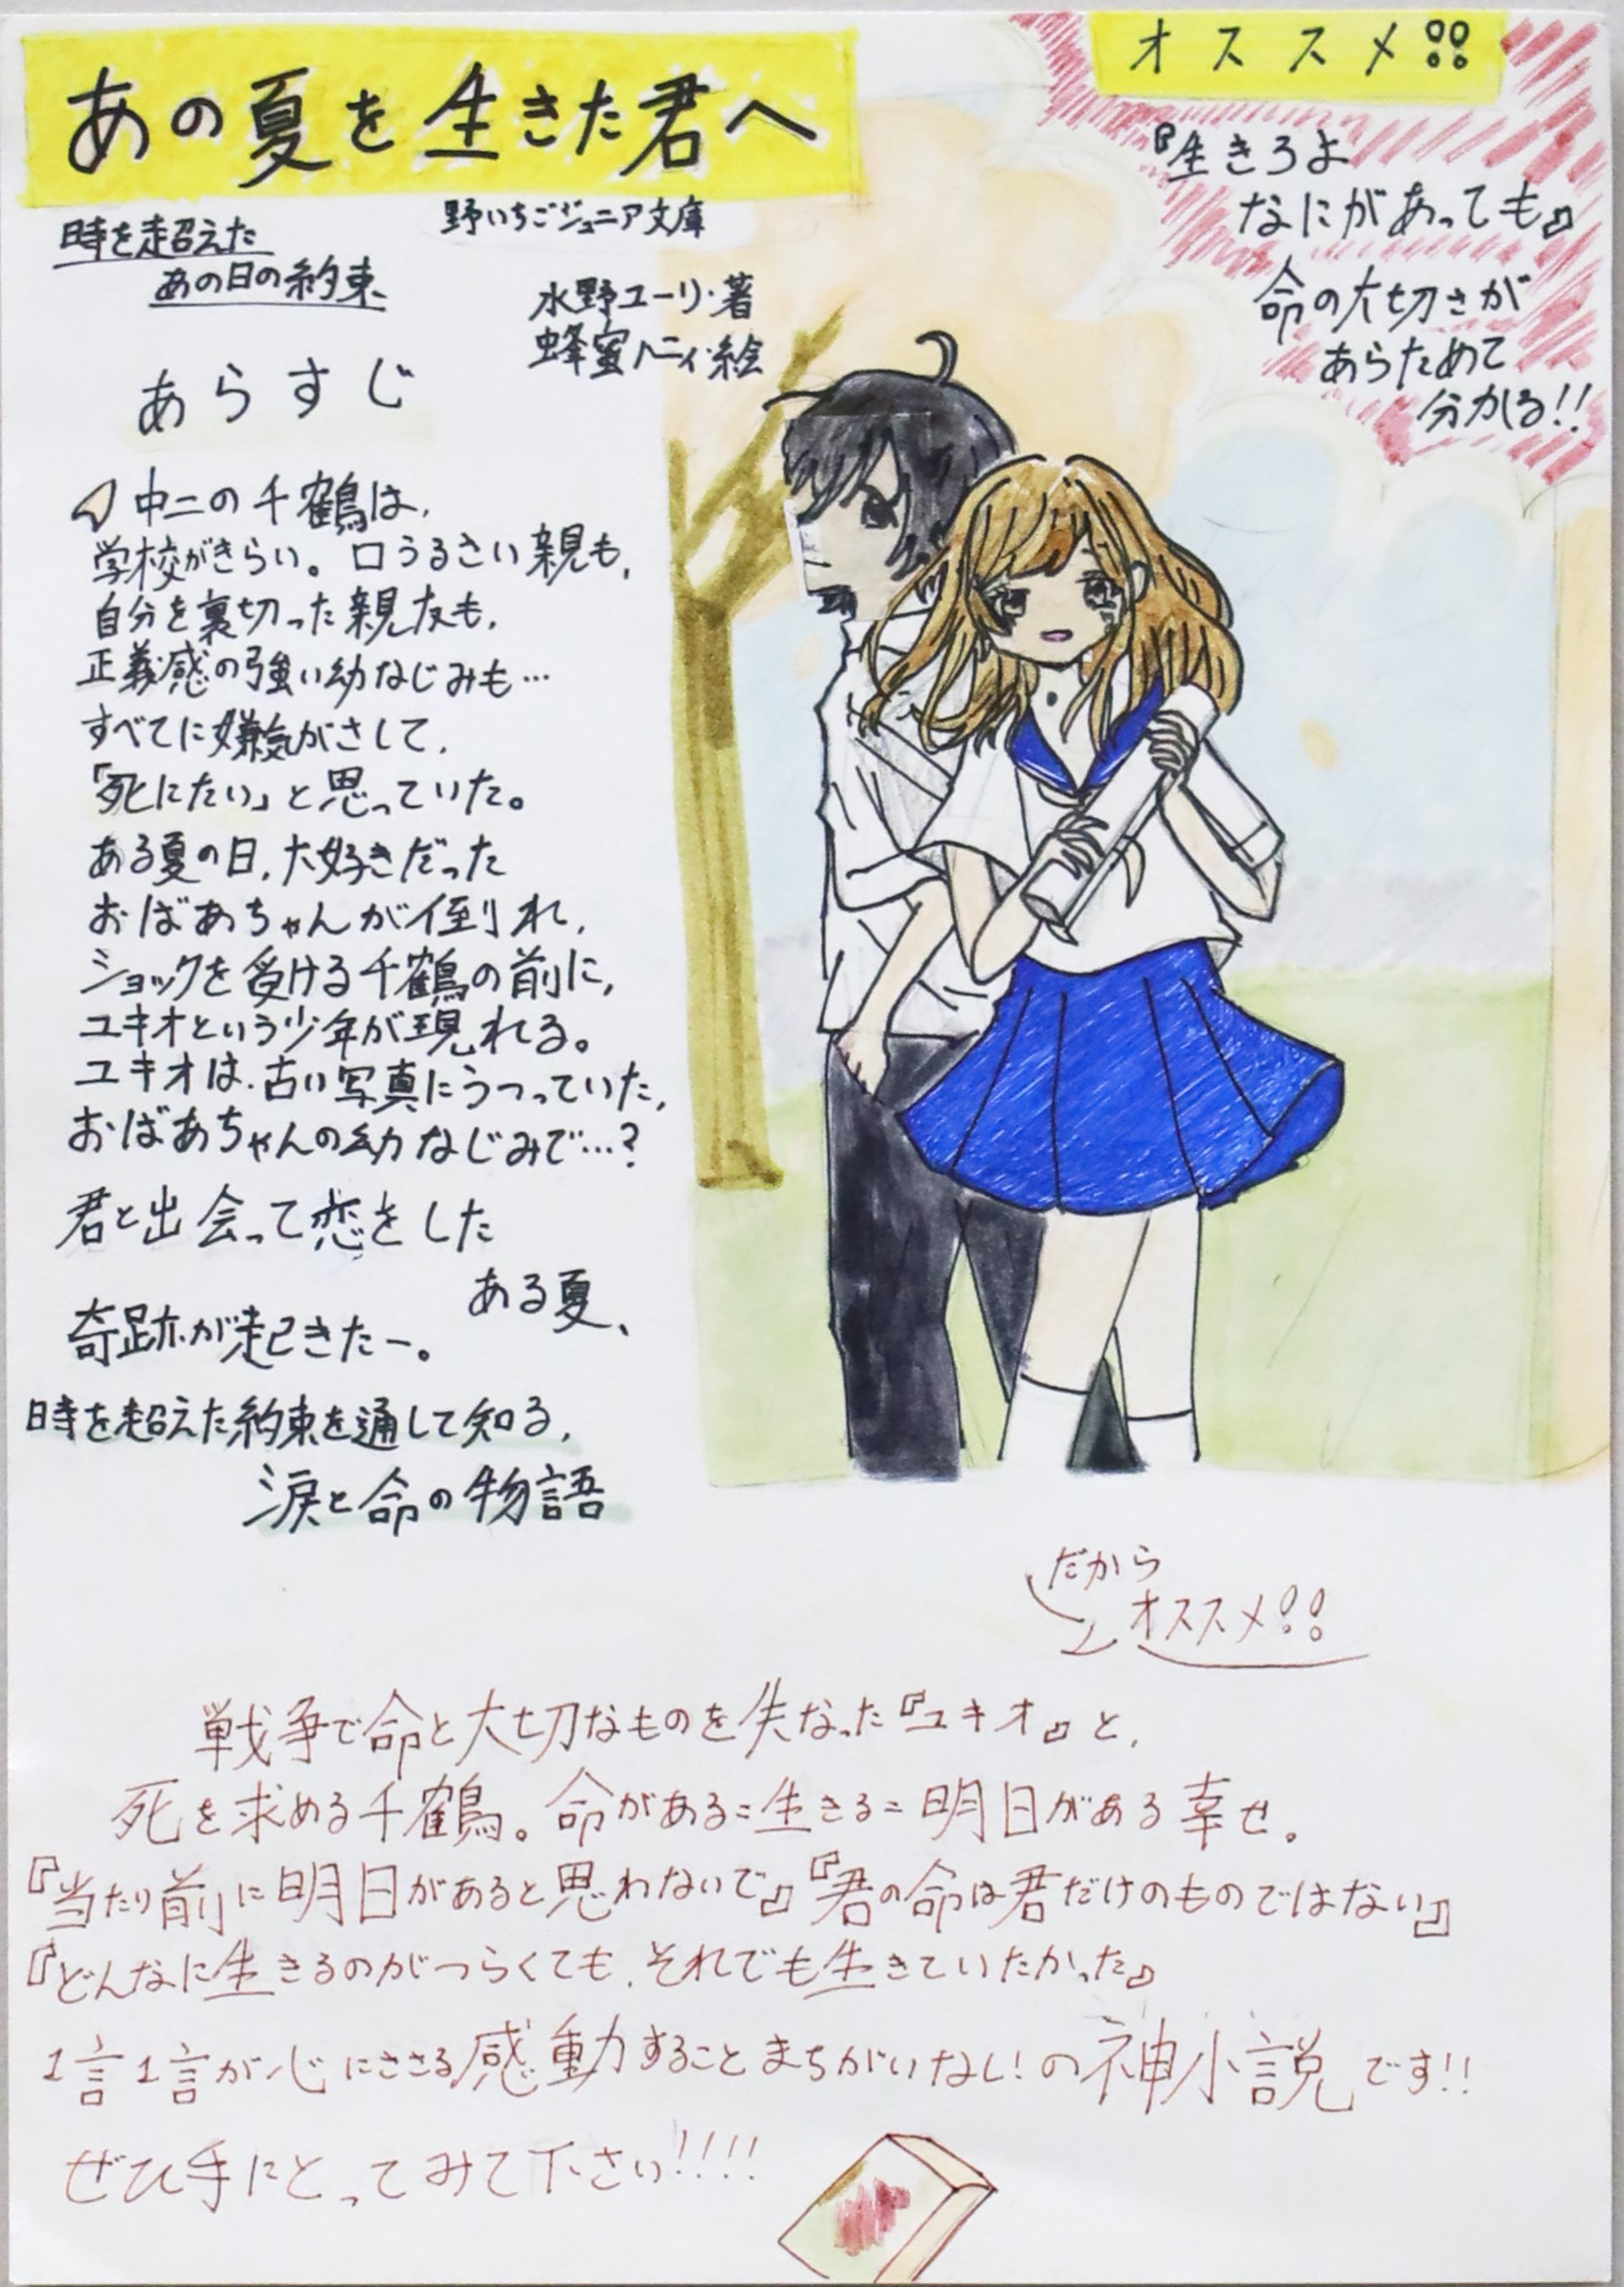 あの夏を生きた君へ
時を超えた
あの日の約束
野いちごジュニア文庫
水野ユーリ・著
蜂蜜ハニィ・絵
オススメ!!
『生きろよ
なにがあっても』
命の大切さが
あらためて
分かる!!
あらすじ
中二の千鶴は、
学校がきらい。口うるさい親も、
自分を裏切った親友も、
正義感の強い幼なじみも…
すべてに嫌気がさして、
「死にたい」と思っていた。
ある夏の日、大好きだった
おばあちゃんが倒れ、
ショックを受ける千鶴の前に、
ユキオという少年が現れる。
ユキオは、古い写真にうつっていた、
おばあちゃんの幼なじみで…?
君と出会って恋をした
ある夏、
奇跡が起きたー。
時を超えた約束を通して知る、
涙と命の物語
だから
オススメ!!
戦争で命と大切なものを失なった『ユキオ』と、
死を求める千鶴。命がある=生きる=明日がある幸せ。
『当たり前に明日があると思わないで』『君の命は君だけのものではない』
『どんなに生きるのがつらくても、それでも生きていたかった』
1言1言が心にささる感動することまちがいなし!の神小説です!!
ぜひ手にとってみて下さい!!!!